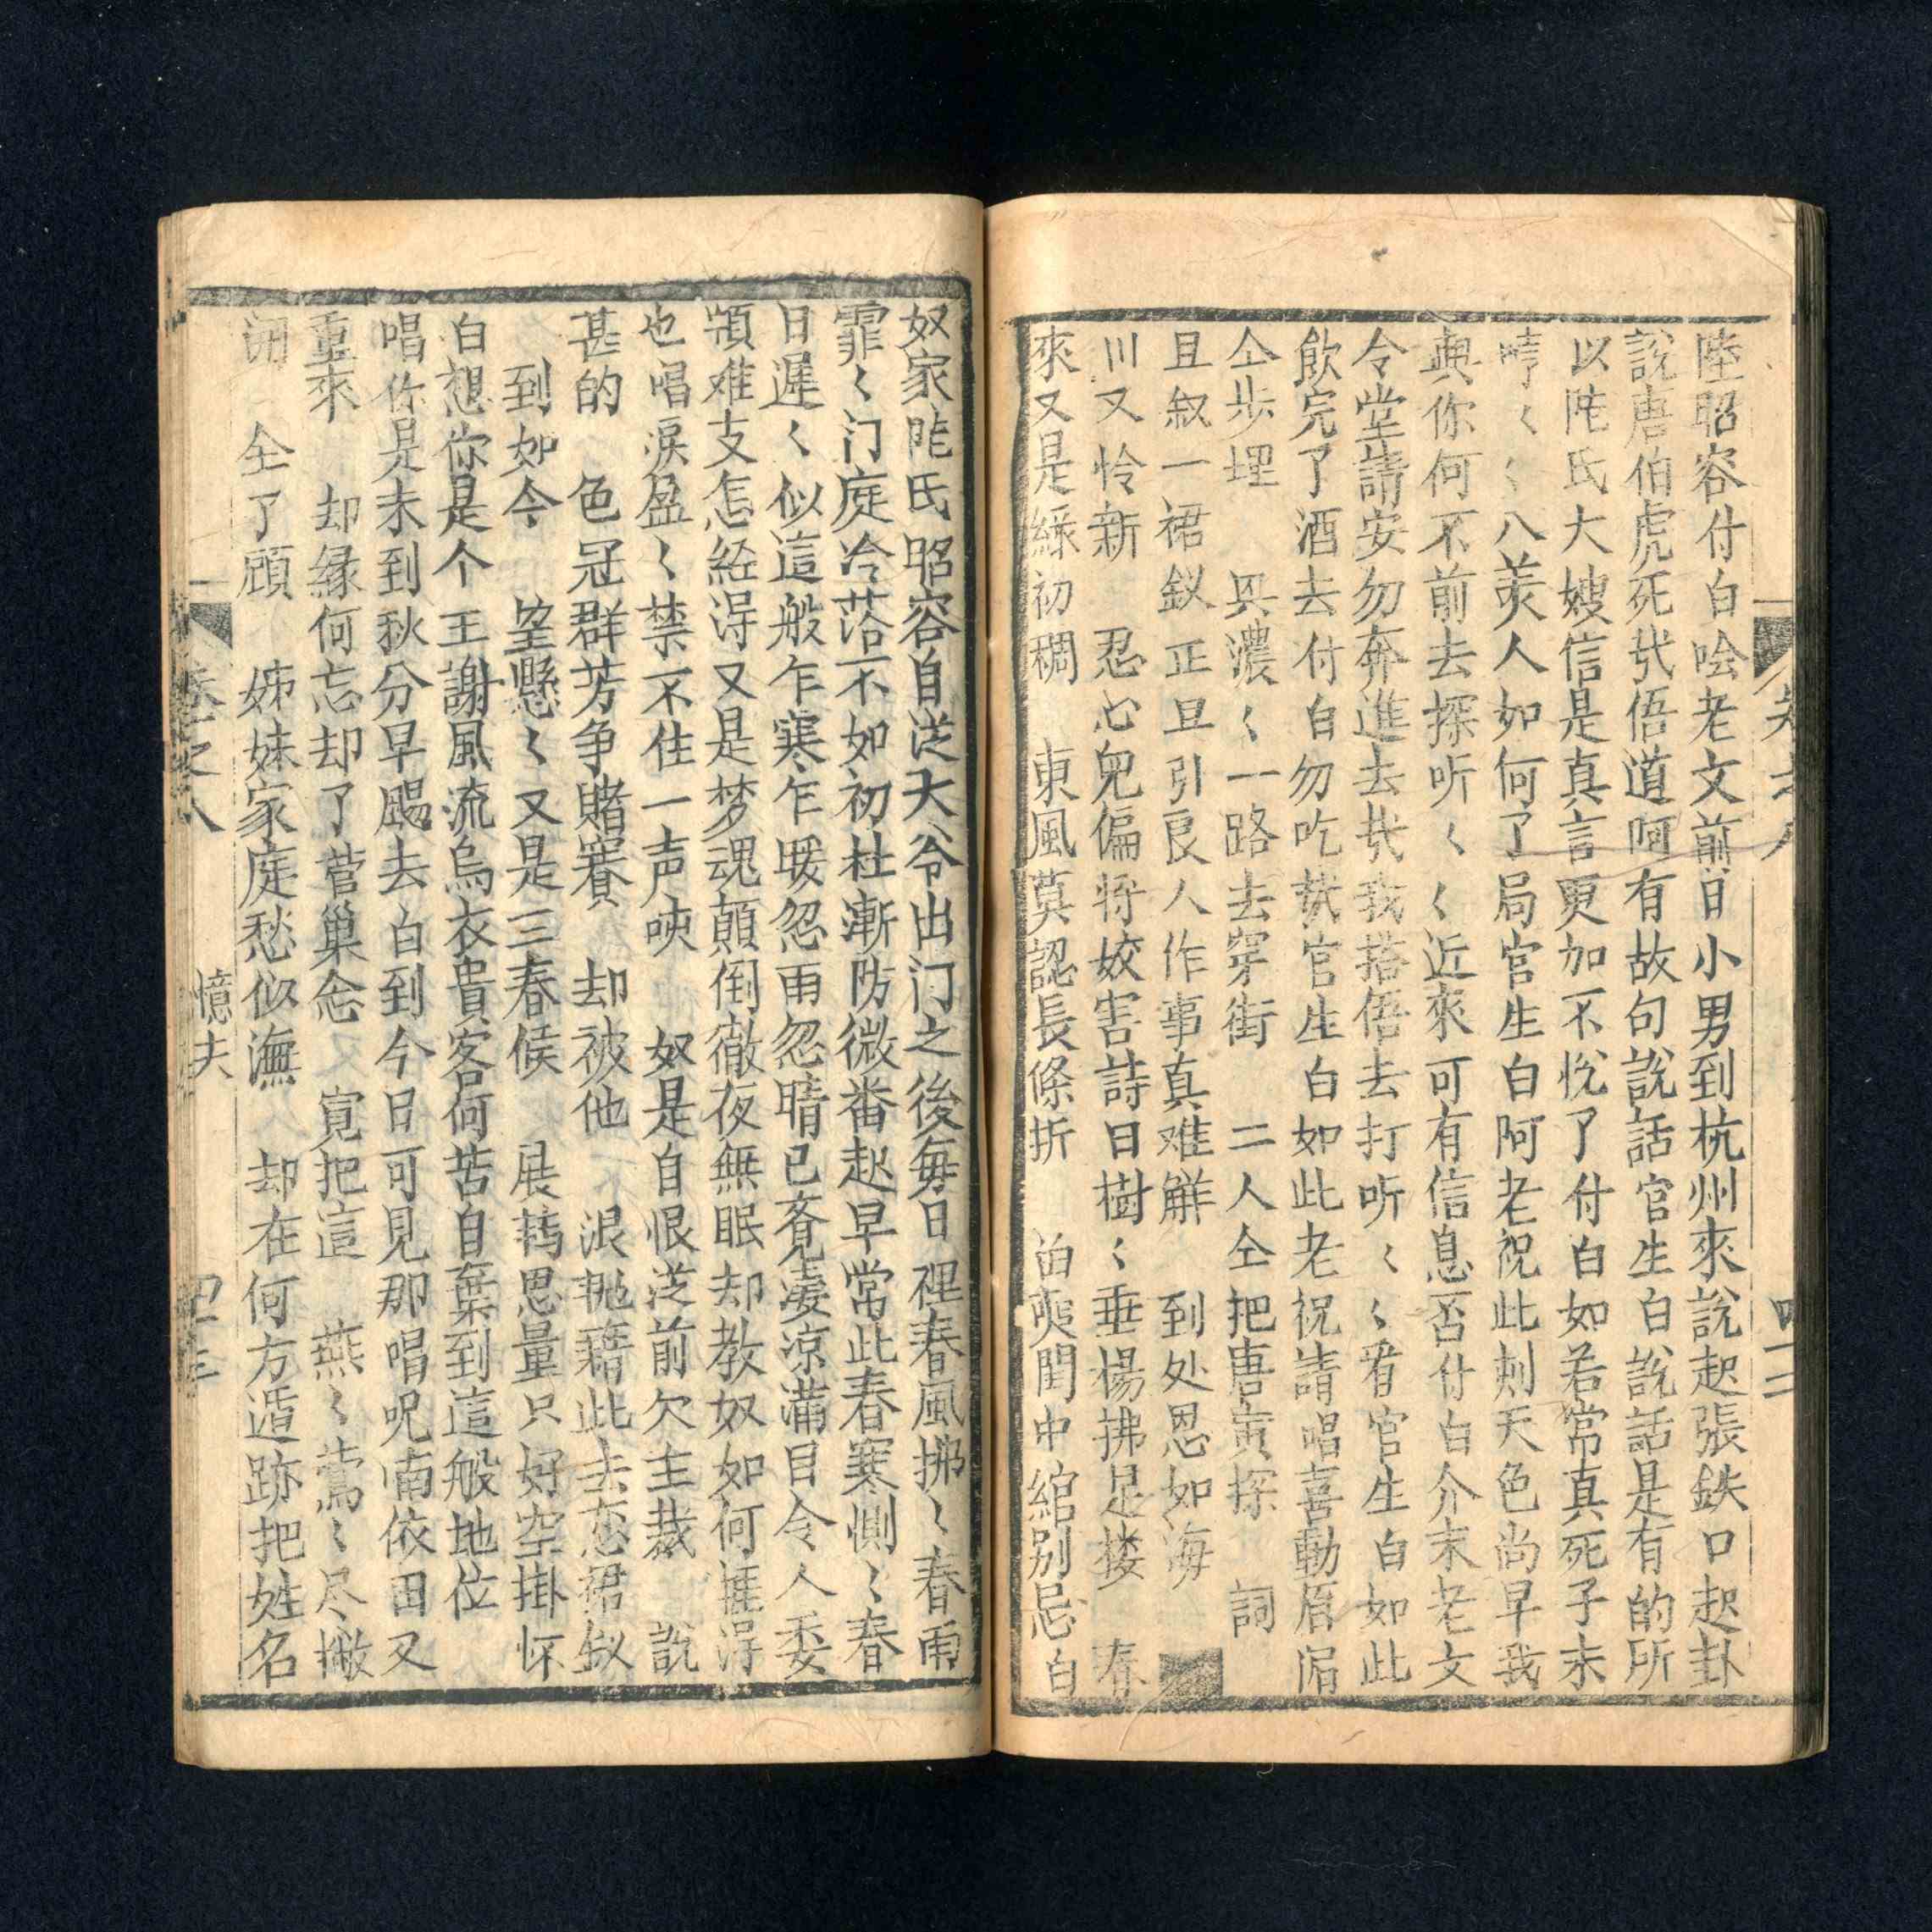 陸昭容付白唫老文前日小男到杭州來說起張鉄口起卦
說唐伯虎死哉俉道呵有故句說話官生白說話是有的所
以陸氏大嫂信是真言更加不悅了付白如若常真死子末
哼〻〻八美人如何了局官生白阿老祝此刻天色尚早我
與你何不前去探听〻〻近來可有信息否付白介末老文
令堂請安勿奔進去哉我搭俉去打听〻〻看官生白如此
飲完了酒去付白勿吃哉官生白如此老祝請唱喜動眉湄
仝步埋 興濃〻一路去穿街 二人仝把唐寅探 詞
且叙一裙釵正旦引良人作事真难觧 到处恩如海
川又怜新 忍心兒偏將姣害詩日樹〻垂楊拂足楼 春
來又是緑初稠 東風莫認長條折 閨中綰别忌白
奴家陸氏昭容自従大爷出门之後每日裡春風拂〻春雨
霏〻门庭冷落不如初杜漸防微畨起早常此春寒惻〻春
日遲〻似這般乍寒乍暖忽雨忽晴已覚凄凉满目令人委
頓难支怎経淂又是梦魂顛倒徹夜無眠却教奴如何捱淂
也唱淚盈〻禁不住一声唉 奴是自恨従前欠主裁 說
甚的 色冠群芳争賭賽 却被他 浪 藉此去恋裙釵
到如今 望懸〻又是三春候 展轉思量只好空掛怀
白想你是个王謝風流烏衣貴客何苦自棄到這般地位
唱你是末到秋分早颺去白到今日可見那唱呢喃依旧又
重來 却縁何忘却了菅巢念 寛把這 燕〻鶯〻尽撇
開 仝了顧 姊妹家庭愁似㵲 却在何方遁跡把姓名
卷之八 憶夫 四十三